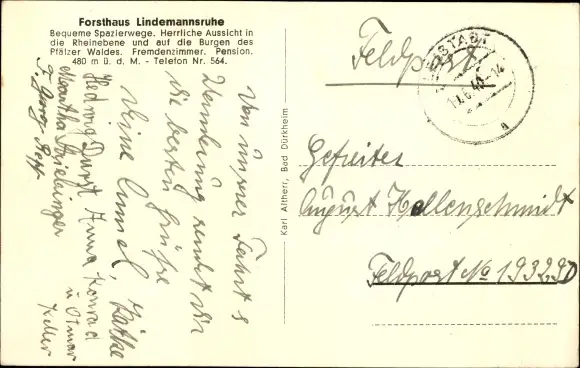 Forsthaus Lindemannsruhe
Bequeme Spazierwege. Herrliche Aussicht in
die Rheinebene und auf die Burgen des
Pfälzer Waldes. Fremdenzimmer. Pension.
480 m ü. d. M. - Telefon Nr. 564.
Von unserer Fahrt &
Wanderung sendet dir
die besten Grüße
deine Emmel, Käthe
Hedwig Durst Anna Konrad
u Otmar
Keller
Martha
Georg
Karl Altherr, Bad Dürkheim
Feldpost
Gefreiter
August Kellenschmidt
Feldpost No 19329D